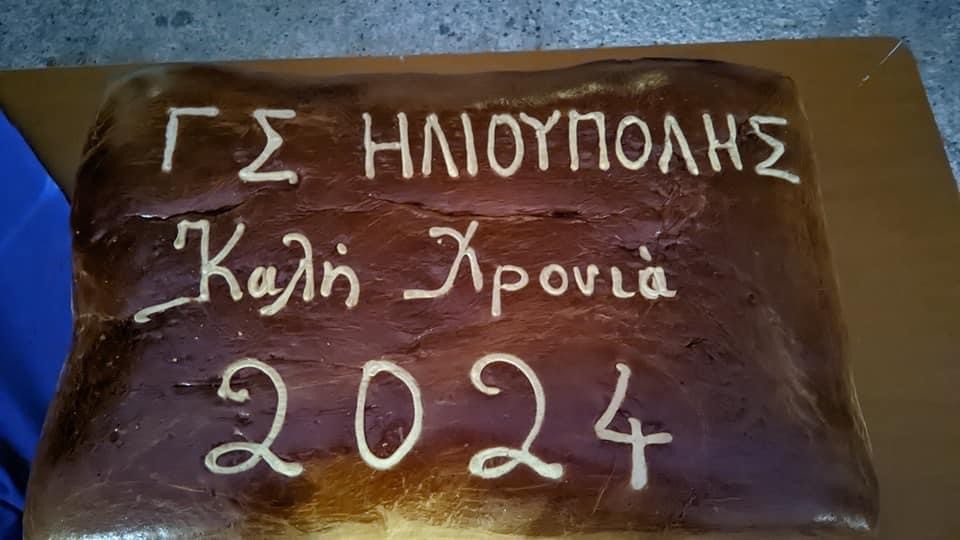 ΓΣ ΗΛΙΟΥΠΟΛΗΣ
Καλή Χρονιά
2024